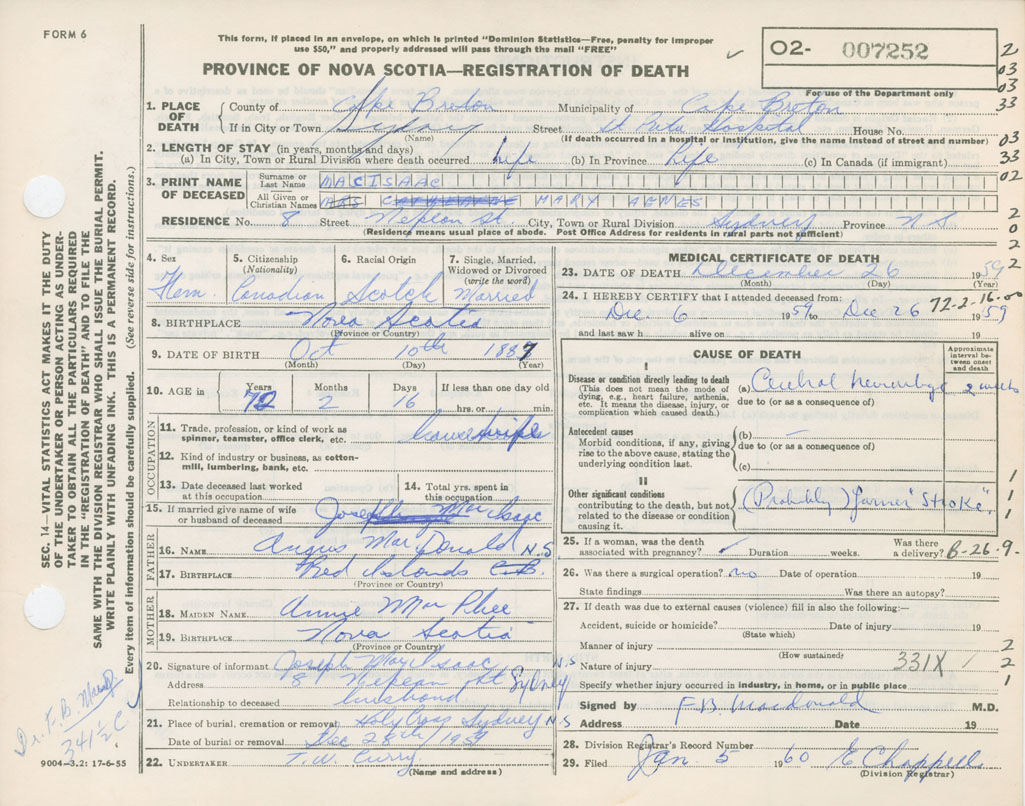 FORM 6
This form, if placed in an envelope, on which is printed "Dominion Statistics—Free, penalty for improper
use $50," and properly addressed will pass through the mail "FREE"
PROVINCE OF NOVA SCOTIA—REGISTRATION OF DEATH
O2- 007252
For use of the Department only
2
03
03
33
03
33
02
2
0
2
2
SEC. 14—VITAL STATISTICS ACT MAKES IT THE DUTY
OF THE UNDERTAKER OR PERSON ACTING AS UNDER-
TAKER TO OBTAIN ALL THE PARTICULARS REQUIRED
IN THE "REGISTRATION OF DEATH" AND TO FILE THE
SAME WITH THE DIVISION REGISTRAR WHO SHALL ISSUE THE BURIAL PERMIT.
WRITE PLAINLY WITH UNFADING INK. THIS IS A PERMANENT RECORD.
Every item of information should be carefully supplied. (See reverse side for instructions.)
1. PLACE OF DEATH
County of Cape Breton Municipality of Cape Breton
If in City or Town Sydney Street St Rita Hospital House No.
(Name) (If death occurred in a hospital or institution, give the name instead of street and number)
2. LENGTH OF STAY (in years, months and days)
(a) In City, Town or Rural Division where death occurred Life (b) In Province Life (c) In Canada (if immigrant)
3. PRINT NAME OF DECEASED
Surname or Last Name MACISAAC
All Given or Christian Names MRS CATHERINE MARY AGNES
RESIDENCE No. 8 Street Nepean St. City, Town or Rural Division Sydney Province N.S.
(Residence means usual place of abode. Post Office Address for residents in rural parts not sufficient)
4. Sex
Fem.
5. Citizenship (Nationality)
Canadian
6. Racial Origin
Scotch
7. Single, Married, Widowed or Divorced (write the word)
Married
8. BIRTHPLACE Nova Scotia
(Province or Country)
9. DATE OF BIRTH Oct 10th 1887
(Month) (Day) (Year)
10. AGE in Years Months Days If less than one day old
72 2 16 hrs. or min.
OCCUPATION
11. Trade, profession, or kind of work as
spinner, teamster, office clerk, etc. housewife
12. Kind of industry or business, as cotton-
mill, lumbering, bank, etc.
13. Date deceased last worked
at this occupation
14. Total yrs. spent in
this occupation
15. If married give name of wife
or husband of deceased Joseph MacIsaac
FATHER
16. NAME Angus MacDonald N.S
17. BIRTHPLACE Red Islands C.B.
(Province or Country)
MOTHER
18. MAIDEN NAME Annie MacPhee
19. BIRTHPLACE Nova Scotia
(Province or Country)
20. Signature of informant Joseph MacIsaac N.S
Address 8 Nepean St Sydney
Relationship to deceased husband
21. Place of burial, cremation or removal Holy Cross Sydney N.S
Date of burial or removal Dec 28th/1959
22. UNDERTAKER T.W. Curry
(Name and address)
Dr. F. B.
341½ C
9004—3.2: 17-6-55
MEDICAL CERTIFICATE OF DEATH
23. DATE OF DEATH December 26 1959
(Month) (Day) (Year)
24. I HEREBY CERTIFY that I attended deceased from: 72-2-16-00
Dec. 6 1959 to Dec 26 1959
and last saw h alive on 19
CAUSE OF DEATH
Approximate interval between onset and death
I
Disease or condition directly leading to death
(This does not mean the mode of
dying, e.g., heart failure, asthenia,
etc. It means the disease, injury, or
complication which caused death.)
(a) Cerebral hemorrhage 2 weeks
due to (or as a consequence of)
Antecedent causes
Morbid conditions, if any, giving
rise to the above cause, stating the
underlying condition last.
(b) —
due to (or as a consequence of)
(c)
II
Other significant conditions
contributing to the death, but not
related to the disease or condition
causing it.
(Probably) former "Stroke".
1
1
1
25. If a woman, was the death
associated with pregnancy? Duration weeks. Was there
a delivery? B-26-9-
26. Was there a surgical operation? no Date of operation 19
State findings Was there an autopsy?
27. If death was due to external causes (violence) fill in also the following:—
Accident, suicide or homicide? Date of injury 19
(State which)
Manner of injury 2
(How sustained)
Nature of injury 331X 1 2
Specify whether injury occurred in industry, in home, or in public place 1
Signed by F.B. Macdonald M.D.
Address Date 19
28. Division Registrar's Record Number
29. Filed Jan. 5 1960 E Chappell
(Division Registrar)